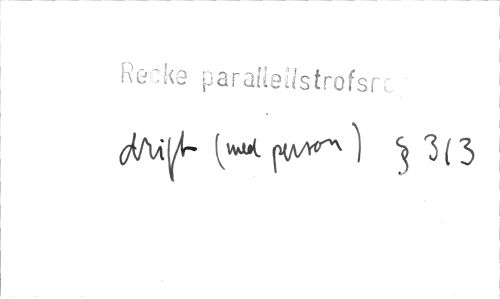 Recke parallellstrofsre
drift (med person) § 313